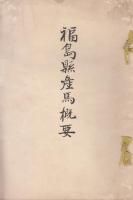 福島縣産馬概要